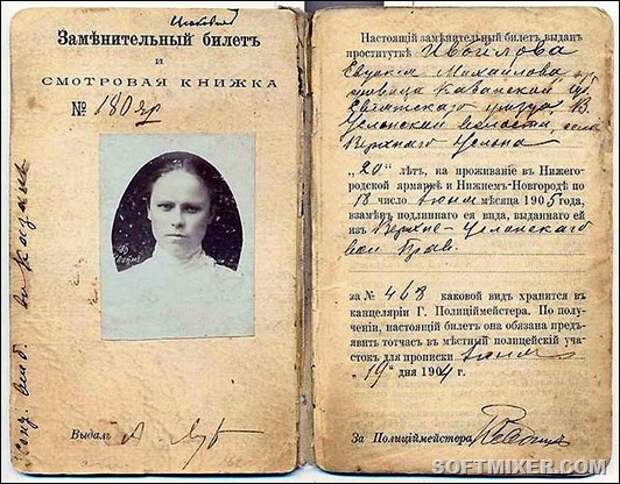 Замѣнительный билетъ
и
СМОТРОВАЯ КНИЖКА
№ 180 яр
Выдалъ
Настоящій замѣнительный билетъ выданъ
проституткѣ Ивойлова
Евдокія Михайлова
Казанской губ.
Свіяжскаго уѣзда, В.
Услонской волости, села
Верхняго Услона
„20" лѣтъ, на проживаніе въ Нижего-
родской ярмаркѣ и Нижнемъ-Новгородѣ по
18 число іюня мѣсяца 1905 года,
взамѣнъ подлиннаго ея вида, выданнаго ей
изъ Верхне-Услонскаго
вол. Прав.
за № 468 каковой видъ хранится въ
канцеляріи Г. Полиціймейстера. По полу-
ченіи, настоящій билетъ она обязана предъ-
явить тотчасъ въ мѣстный полицейскій уча-
стокъ для прописки іюня
„19" дня 1904 г.
За Полиціймейстера
SOFTMIXER.COM